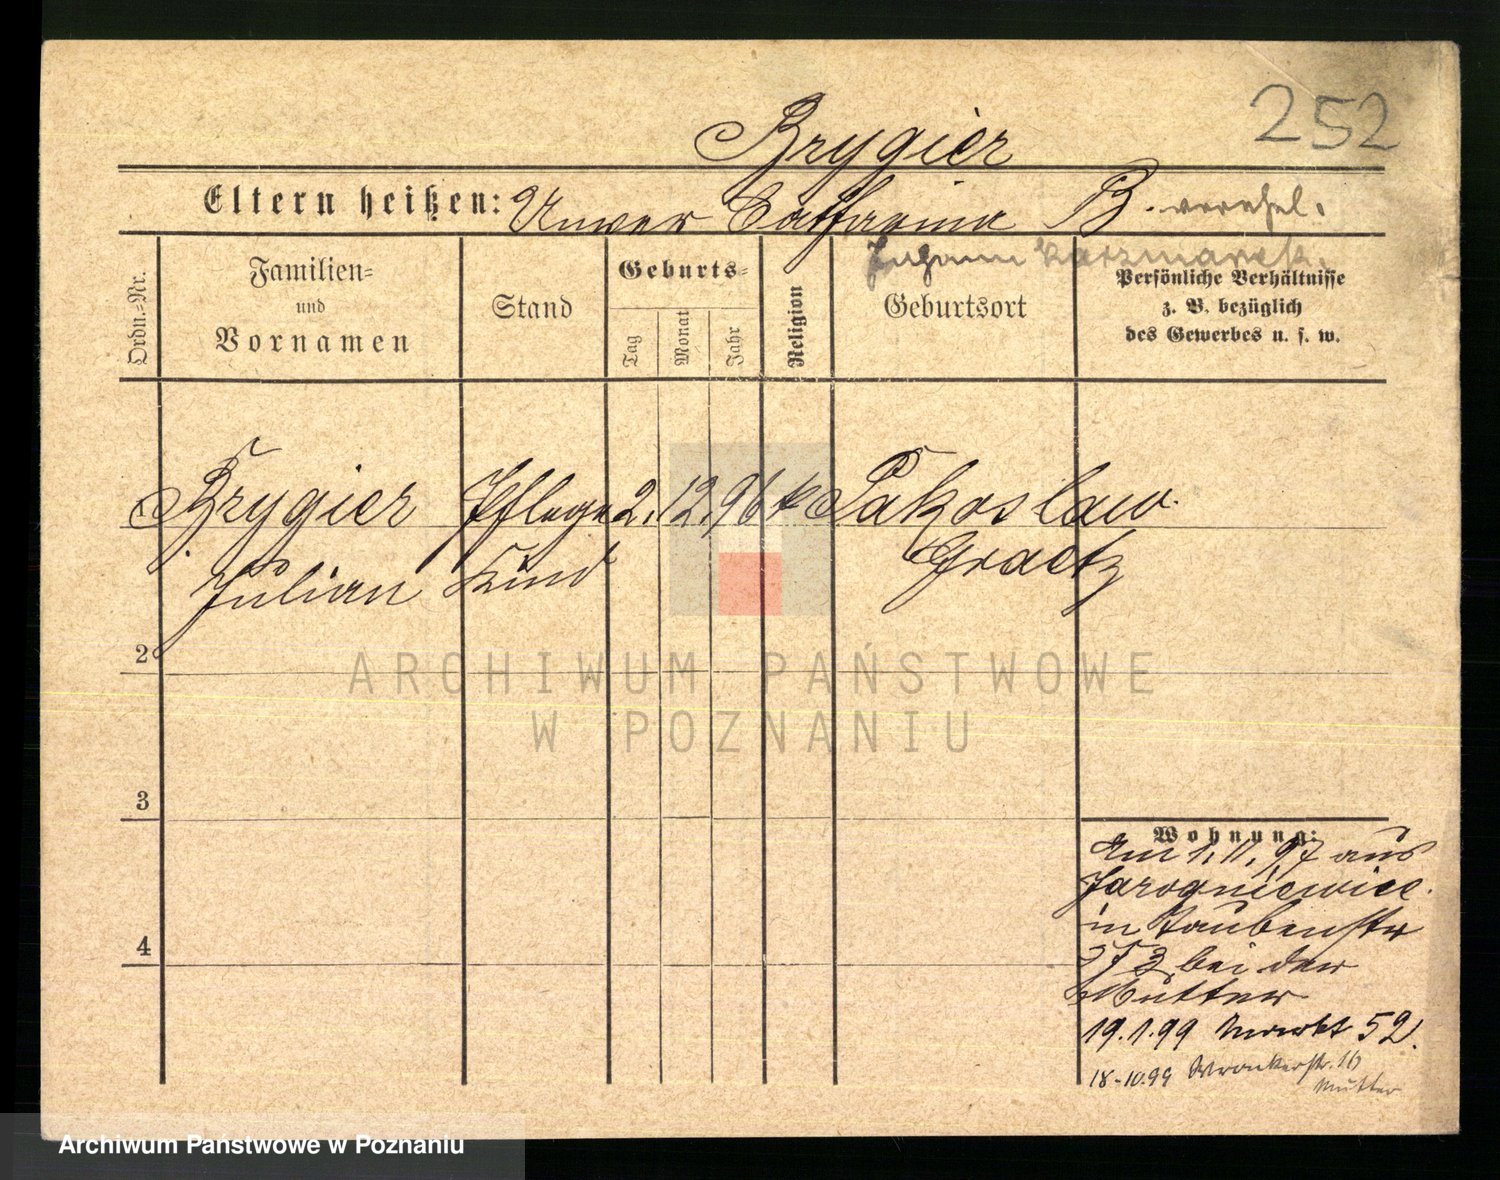 252
Brygier
Eltern heißen: Unver Catharina B. verehel.
Johann Katzmarek.
Ordn.=Nr.
Familien=
und
Vornamen
Stand
Geburts=
Tag
Monat
Jahr
Religion
Geburtsort
Persönliche Verhältnisse
z. B. bezüglich
des Gewerbes u. s. w.
1 Brygier Pflege 2. 12. 96 k Pakoslaw
Julian Kind Graetz
2
ARCHIWUM PAŃSTWOWE
W POZNANIU
3
4
Wohnung:
Am 1. 11. 97 aus
Jarogniewice.
in Taubenstr
bei der
Mutter
19.1.99 Markt 52.
18-10.99 Wronkerstr. 16
Mutter
Archiwum Państwowe w Poznaniu